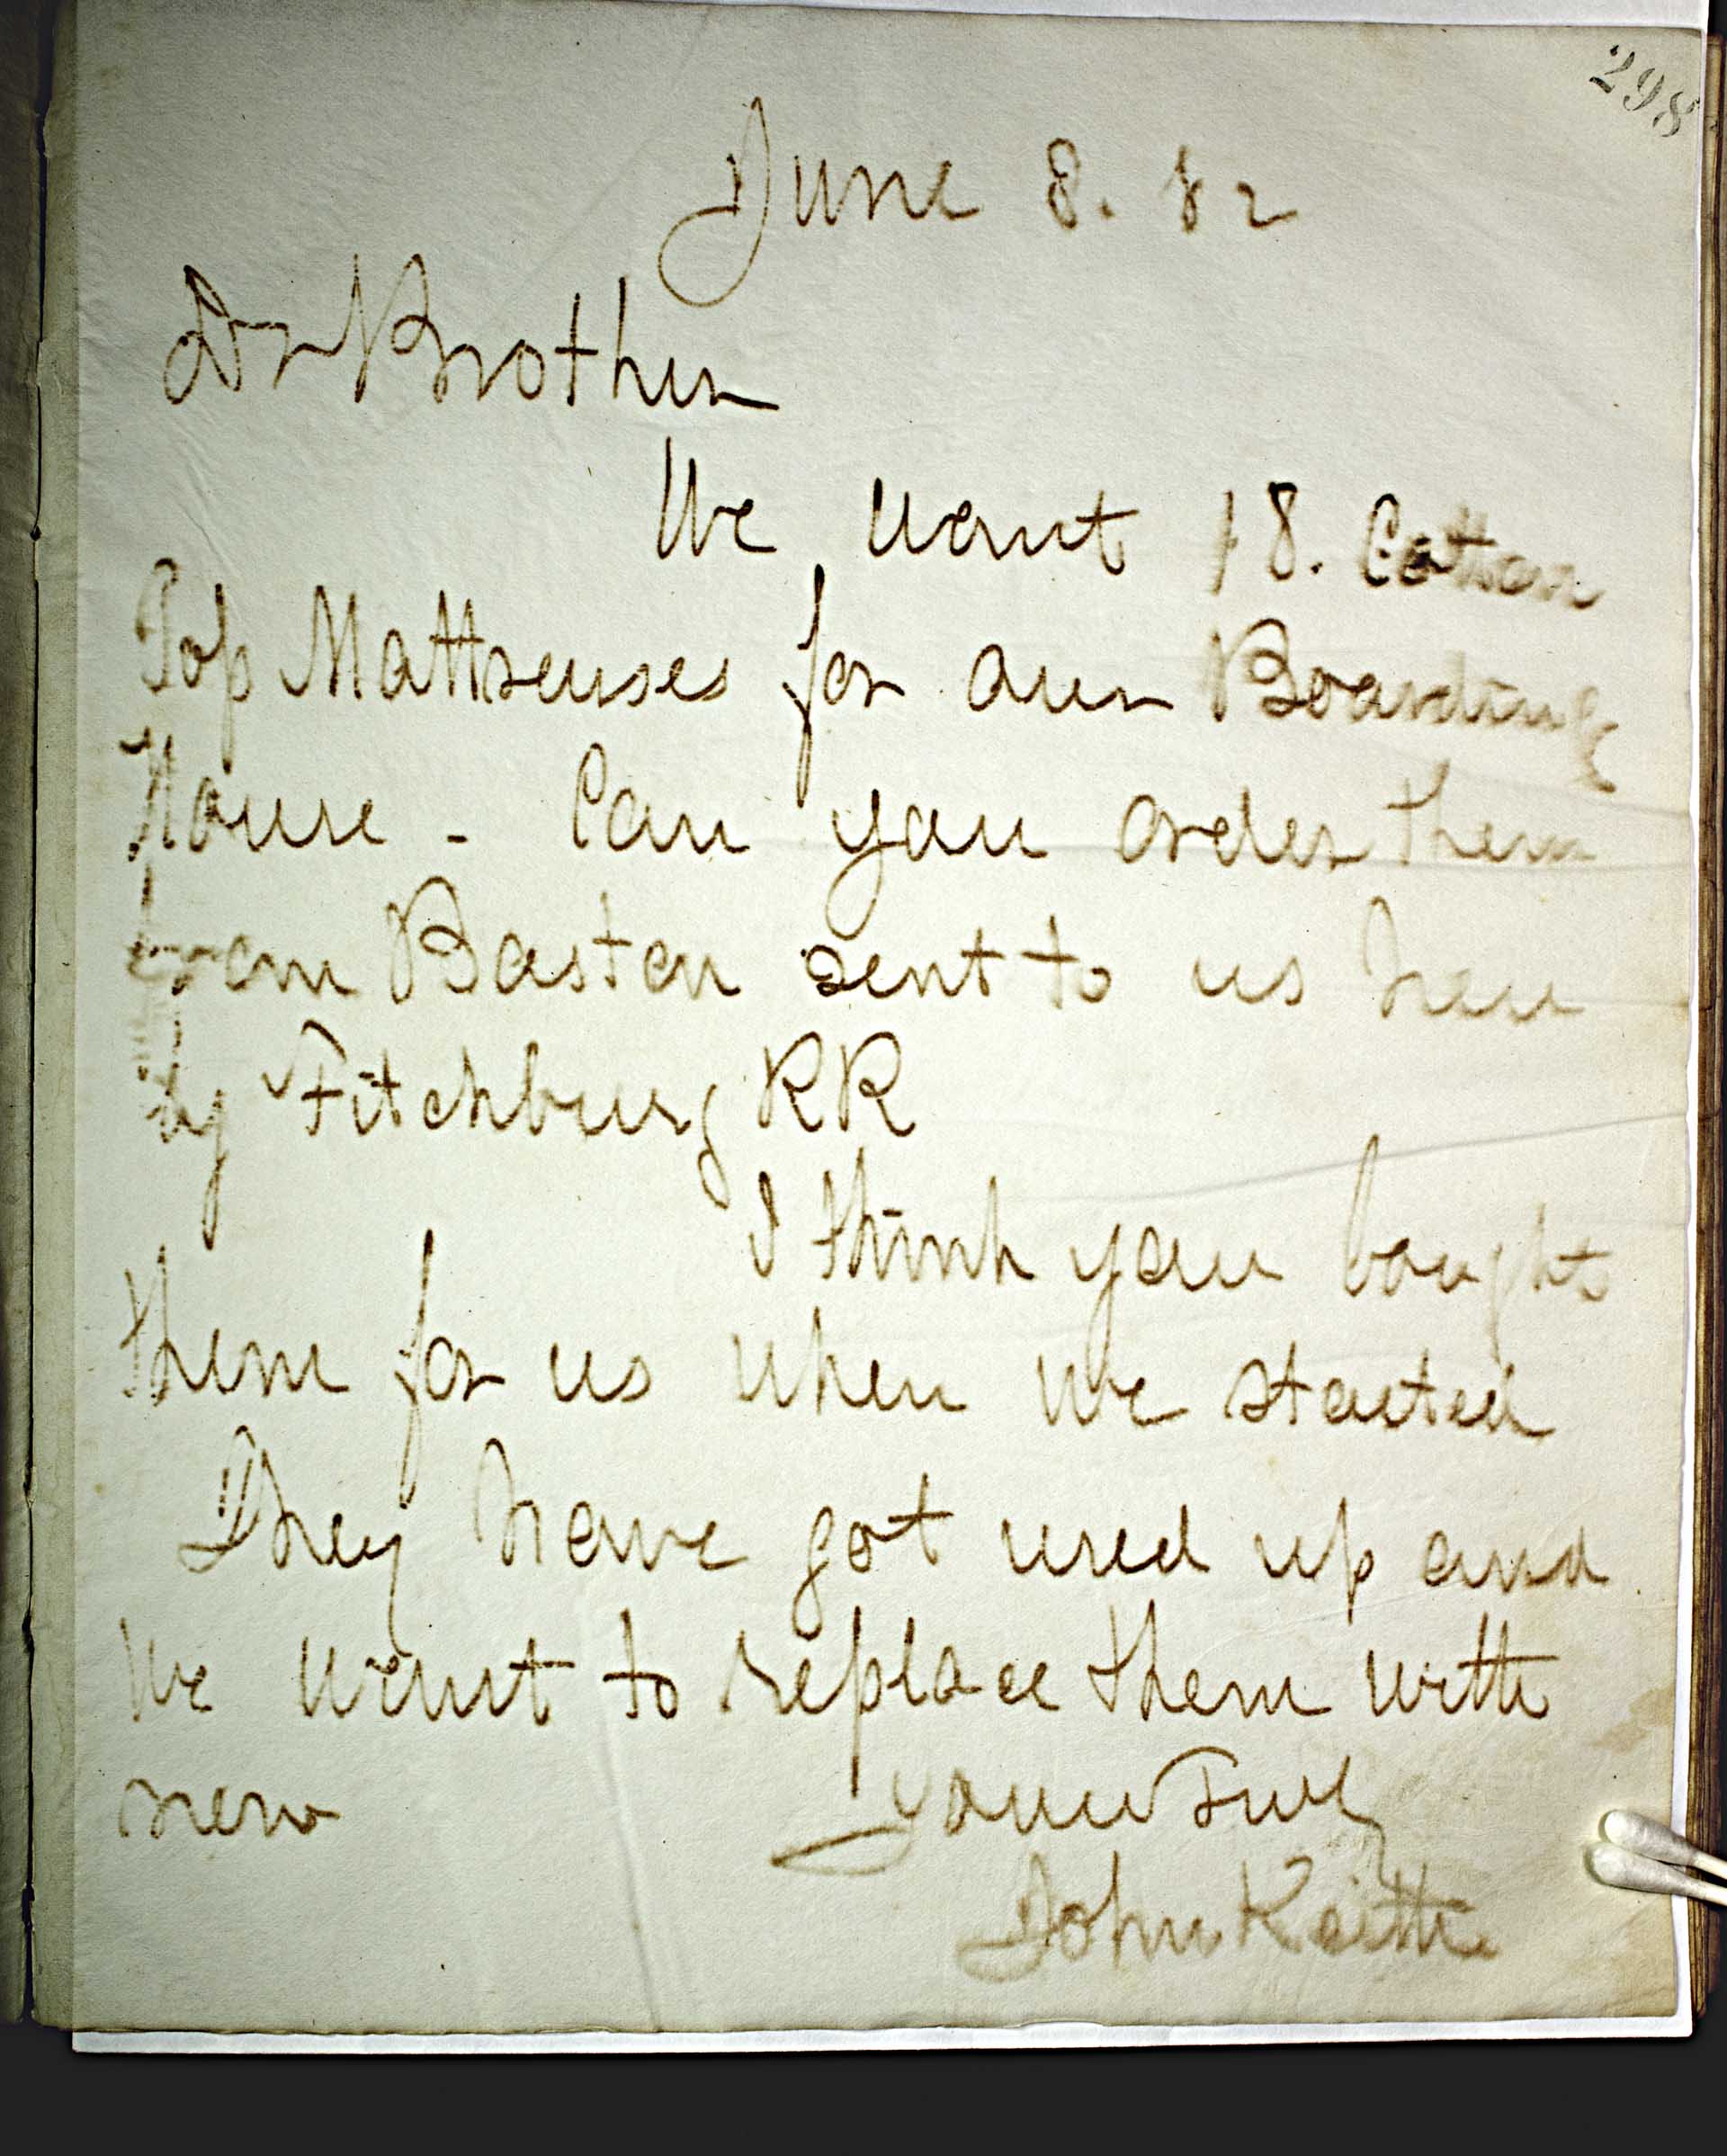 298
June 8. 82
Dr Brother
We want 18. Cotton
Top Mattreuses for our Boarding
House - Can you order them
from Boston sent to us here
by Fitchburg RR
I think you bought
them for us when we started
They have got used up and
We want to replace them with
new Yours Truly
John Keith